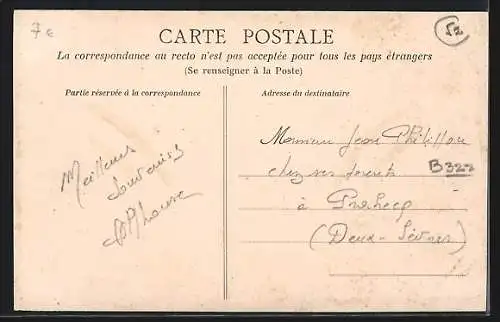 7€
52
CARTE POSTALE
La correspondance au recto n'est pas acceptée pour tous les pays étrangers
(Se renseigner à la Poste)
Partie réservée à la correspondance
Adresse du destinataire
Meilleurs
souvenirs
Monsieur Jean
chez ses parents
B327
à Prahecq
(Deux-Sèvres)